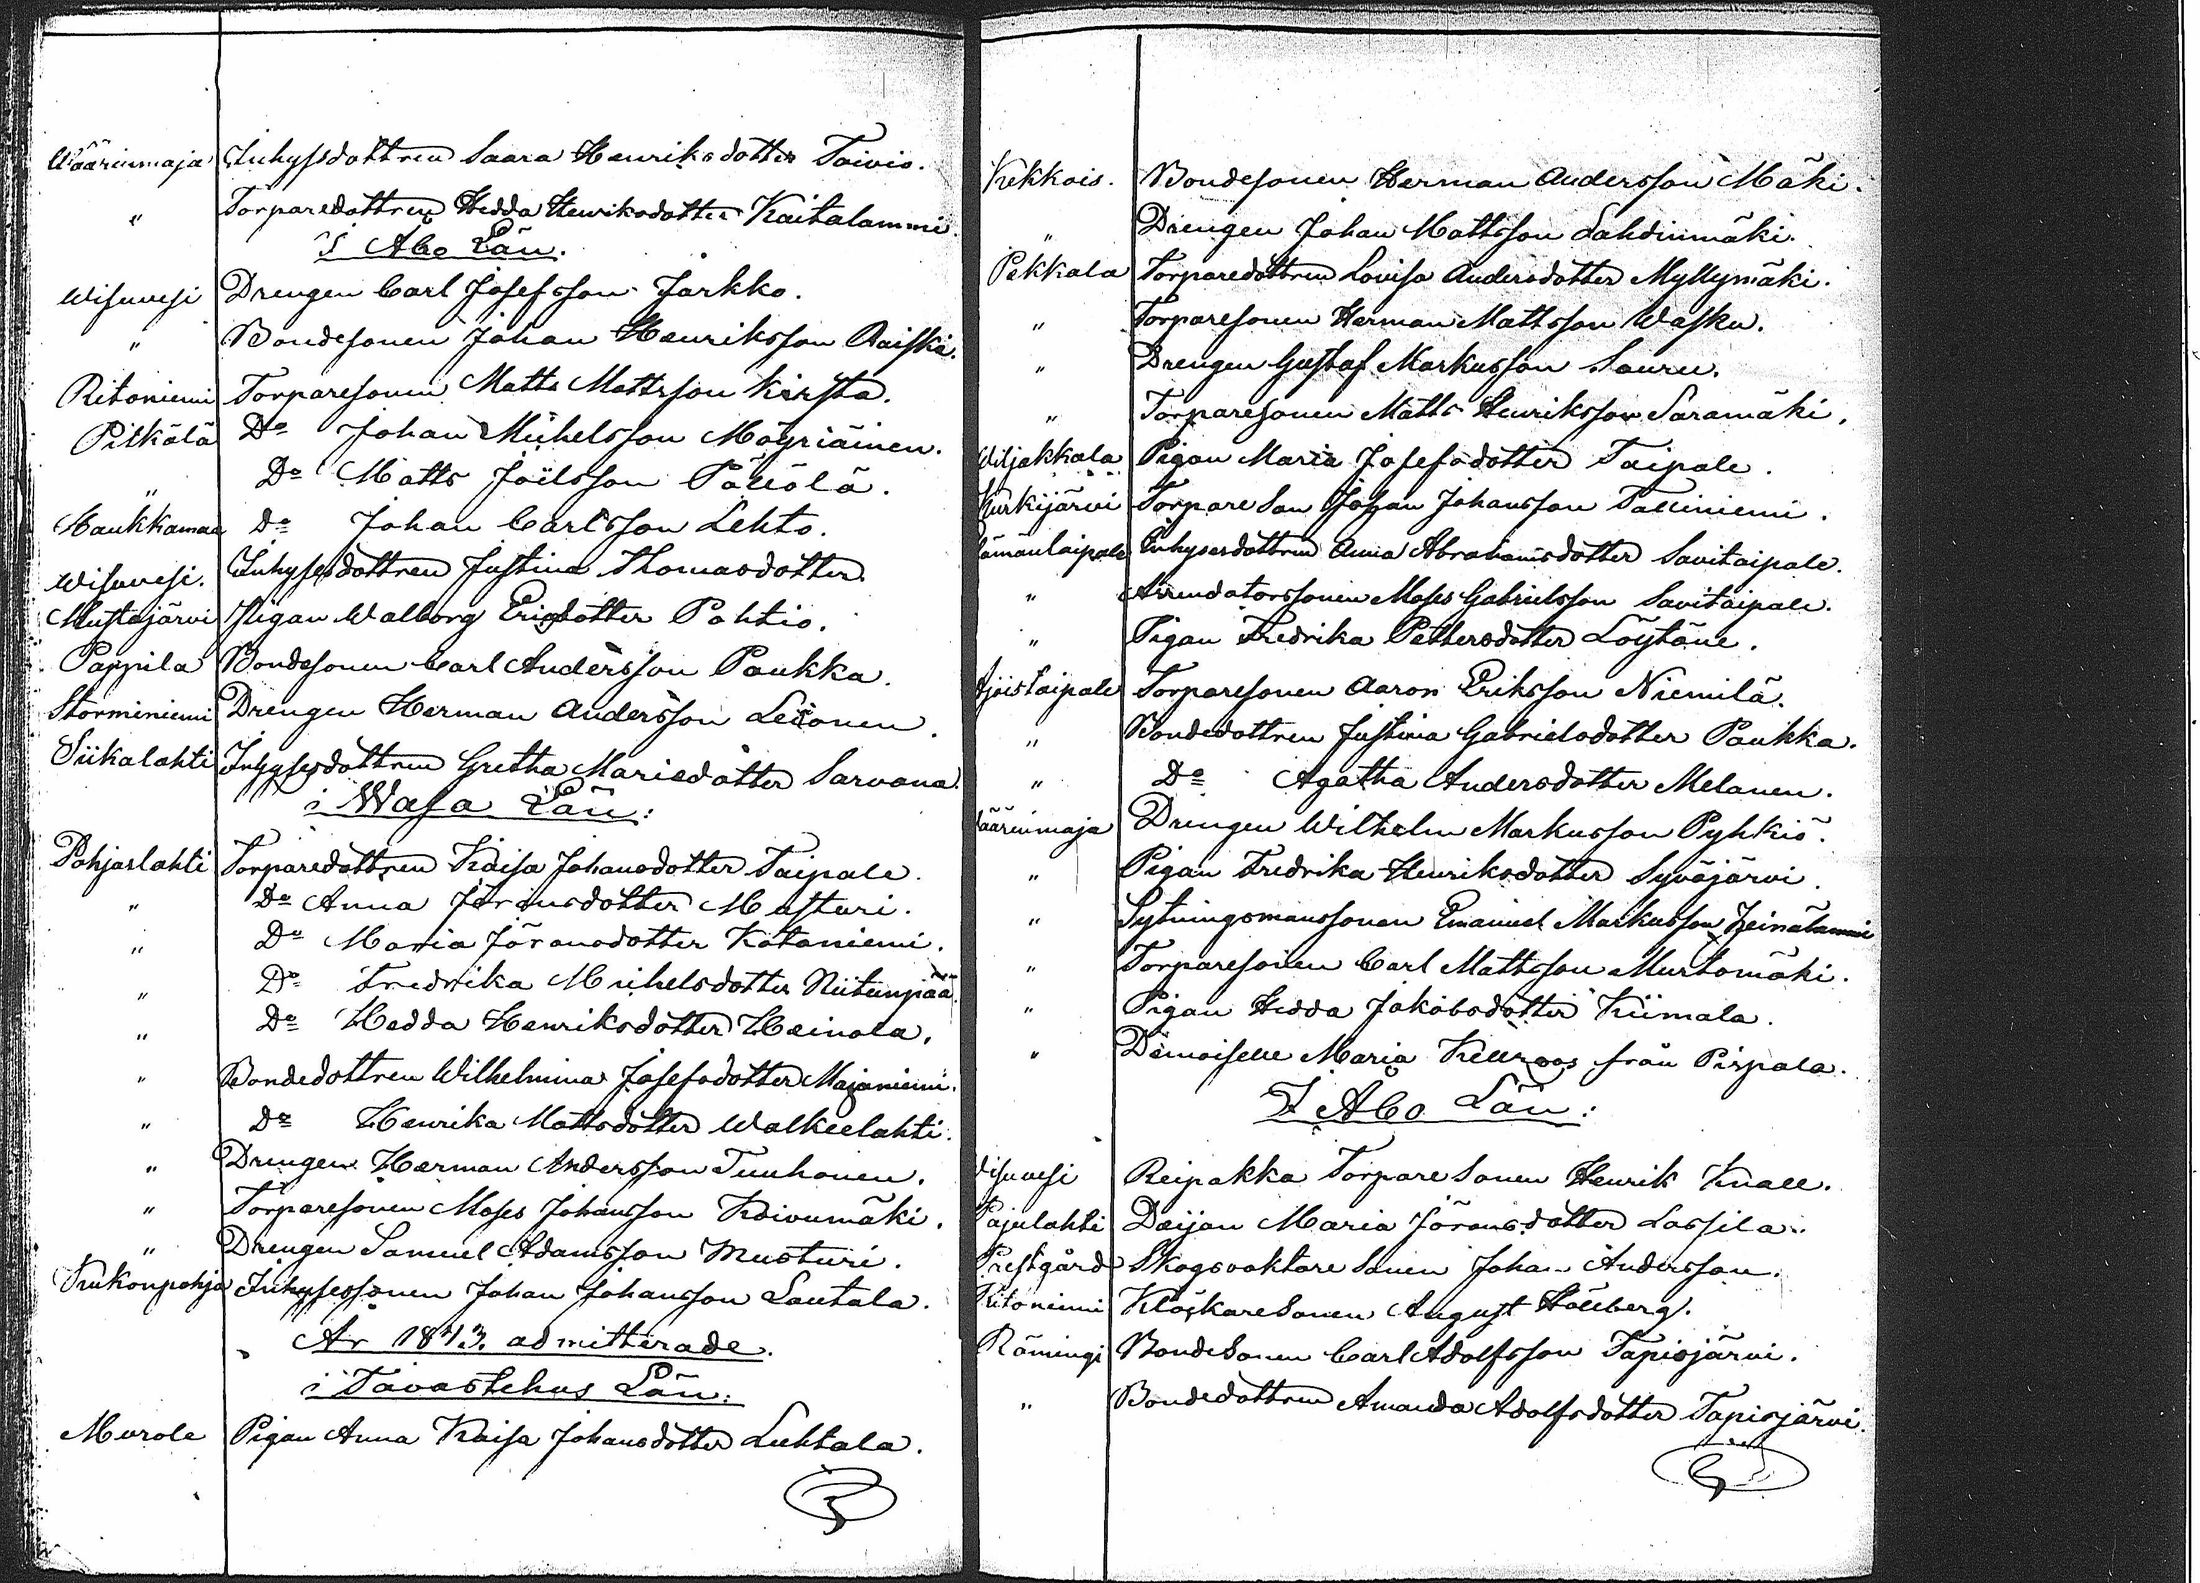 Wäärinmaja Inhysdottren Saara Henriksdotter Toivio.
" Torparedottren Hedda Henriksdotter Kaitalammi.
I Åbo Län.
Wisuvesi Drengen Carl Josefsson Jarkko.
" Bondesonen Johan Henriksson Raiski.
Ritoniemi Torparesonen Matts Mattsson Kirsta.
Pilkälä Do Johan Michelsson Mäyriäinen.
" Do Matts Joilsson Pällölä.
Haukkamaa Do Johan Carlsson Lehto.
Wisuvesi. Inhysesdottren Justina Thomasdotter.
Mustajärvi Pigan Walborg Ericsdotter Pohtio.
Pappila Bondesonen Carl Andersson Paukka.
Storminiemi Drengen Herman Andersson Leionen.
Siikalahti Inhysesdottren Gretha Mariedotter Sarvana.
i Wasa Län:
Pohjaslahti Torparedottren Kaisa Johansdotter Taipale.
" Do Anna Jöransdotter Masturi.
" Do Maria Jöransdotter Kataniemi.
" Do Fredrika Michelsdotter Niitunpää.
" Do Hedda Henriksdotter Heinola.
" Bondedottren Wilhelmina Josefsdotter Majaniemi.
" Do Henrika Mattsdotter Walkeelahti.
" Drengen Herman Andersson Tuuhonen.
" Torparesonen Moses Johansson Koivumäki.
" Drengen Samuel Adamsson Musturi.
Kukonpohja Inhysessonen Johan Johansson Lautala.
År 1873. admitterade.
i Tavastehus Län:
Murole Pigan Anna Kaisa Johansdotter Luhtala.
Kekkois. Bondesonen Herman Andersson Mäki.
" Drengen Johan Mattsson Lahdinmäki.
Pekkala Torparedottren Lovisa Andersdotter Myllymäki.
" Torparesonen Herman Mattsson Wasku.
" Drengen Gustaf Markusson Sauru.
" Torparesonen Matts Henriksson Saramäki.
Wiljakkala Pigan Maria Josefsdotter Taipale.
Kurkijärvi Torpare Son Johan Johansson Talliniemi.
Jämäntaipale Inhysesdottren Anna Abrahamsdotter Savitaipale.
" Arrendatorssonen Moses Gabrielsson Savitaipale.
" Pigan Fredrika Pettersdotter Löytäne.
Äjöistaipale Torparesonen Aaron Eriksson Niemilä.
" Bondedottren Justina Gabrielsdotter Paukka.
" Do Agatha Andersdotter Melanen.
Wäärinmaja Drengen Wilhelm Markusson Pyhkiö.
" Pigan Fredrika Henriksdotter Syväjärvi.
" Sytningsmanssonen Emanuel Markusson Heinälammi
" Torparesonen Carl Mattsson Murtomäki.
" Pigan Hedda Jakobsdotter Kiimala.
" Demoiselle Maria Kellroos från Pirpala.
I Åbo Län:
Wisuvesi Reipakka Torpare Sonen Henrik Knall.
Pajulahti Deijan Maria Jöransdotter Lassila.
Prestgård Skogsvaktare Sonen Johan Andersson.
Ritoniemi Klåckare Sonen August Hällberg.
Rämingi Bonde Sonen Carl Adolfsson Tapiojärvi.
" Bondedottren Amanda Adolfsdotter Tapiojärvi.